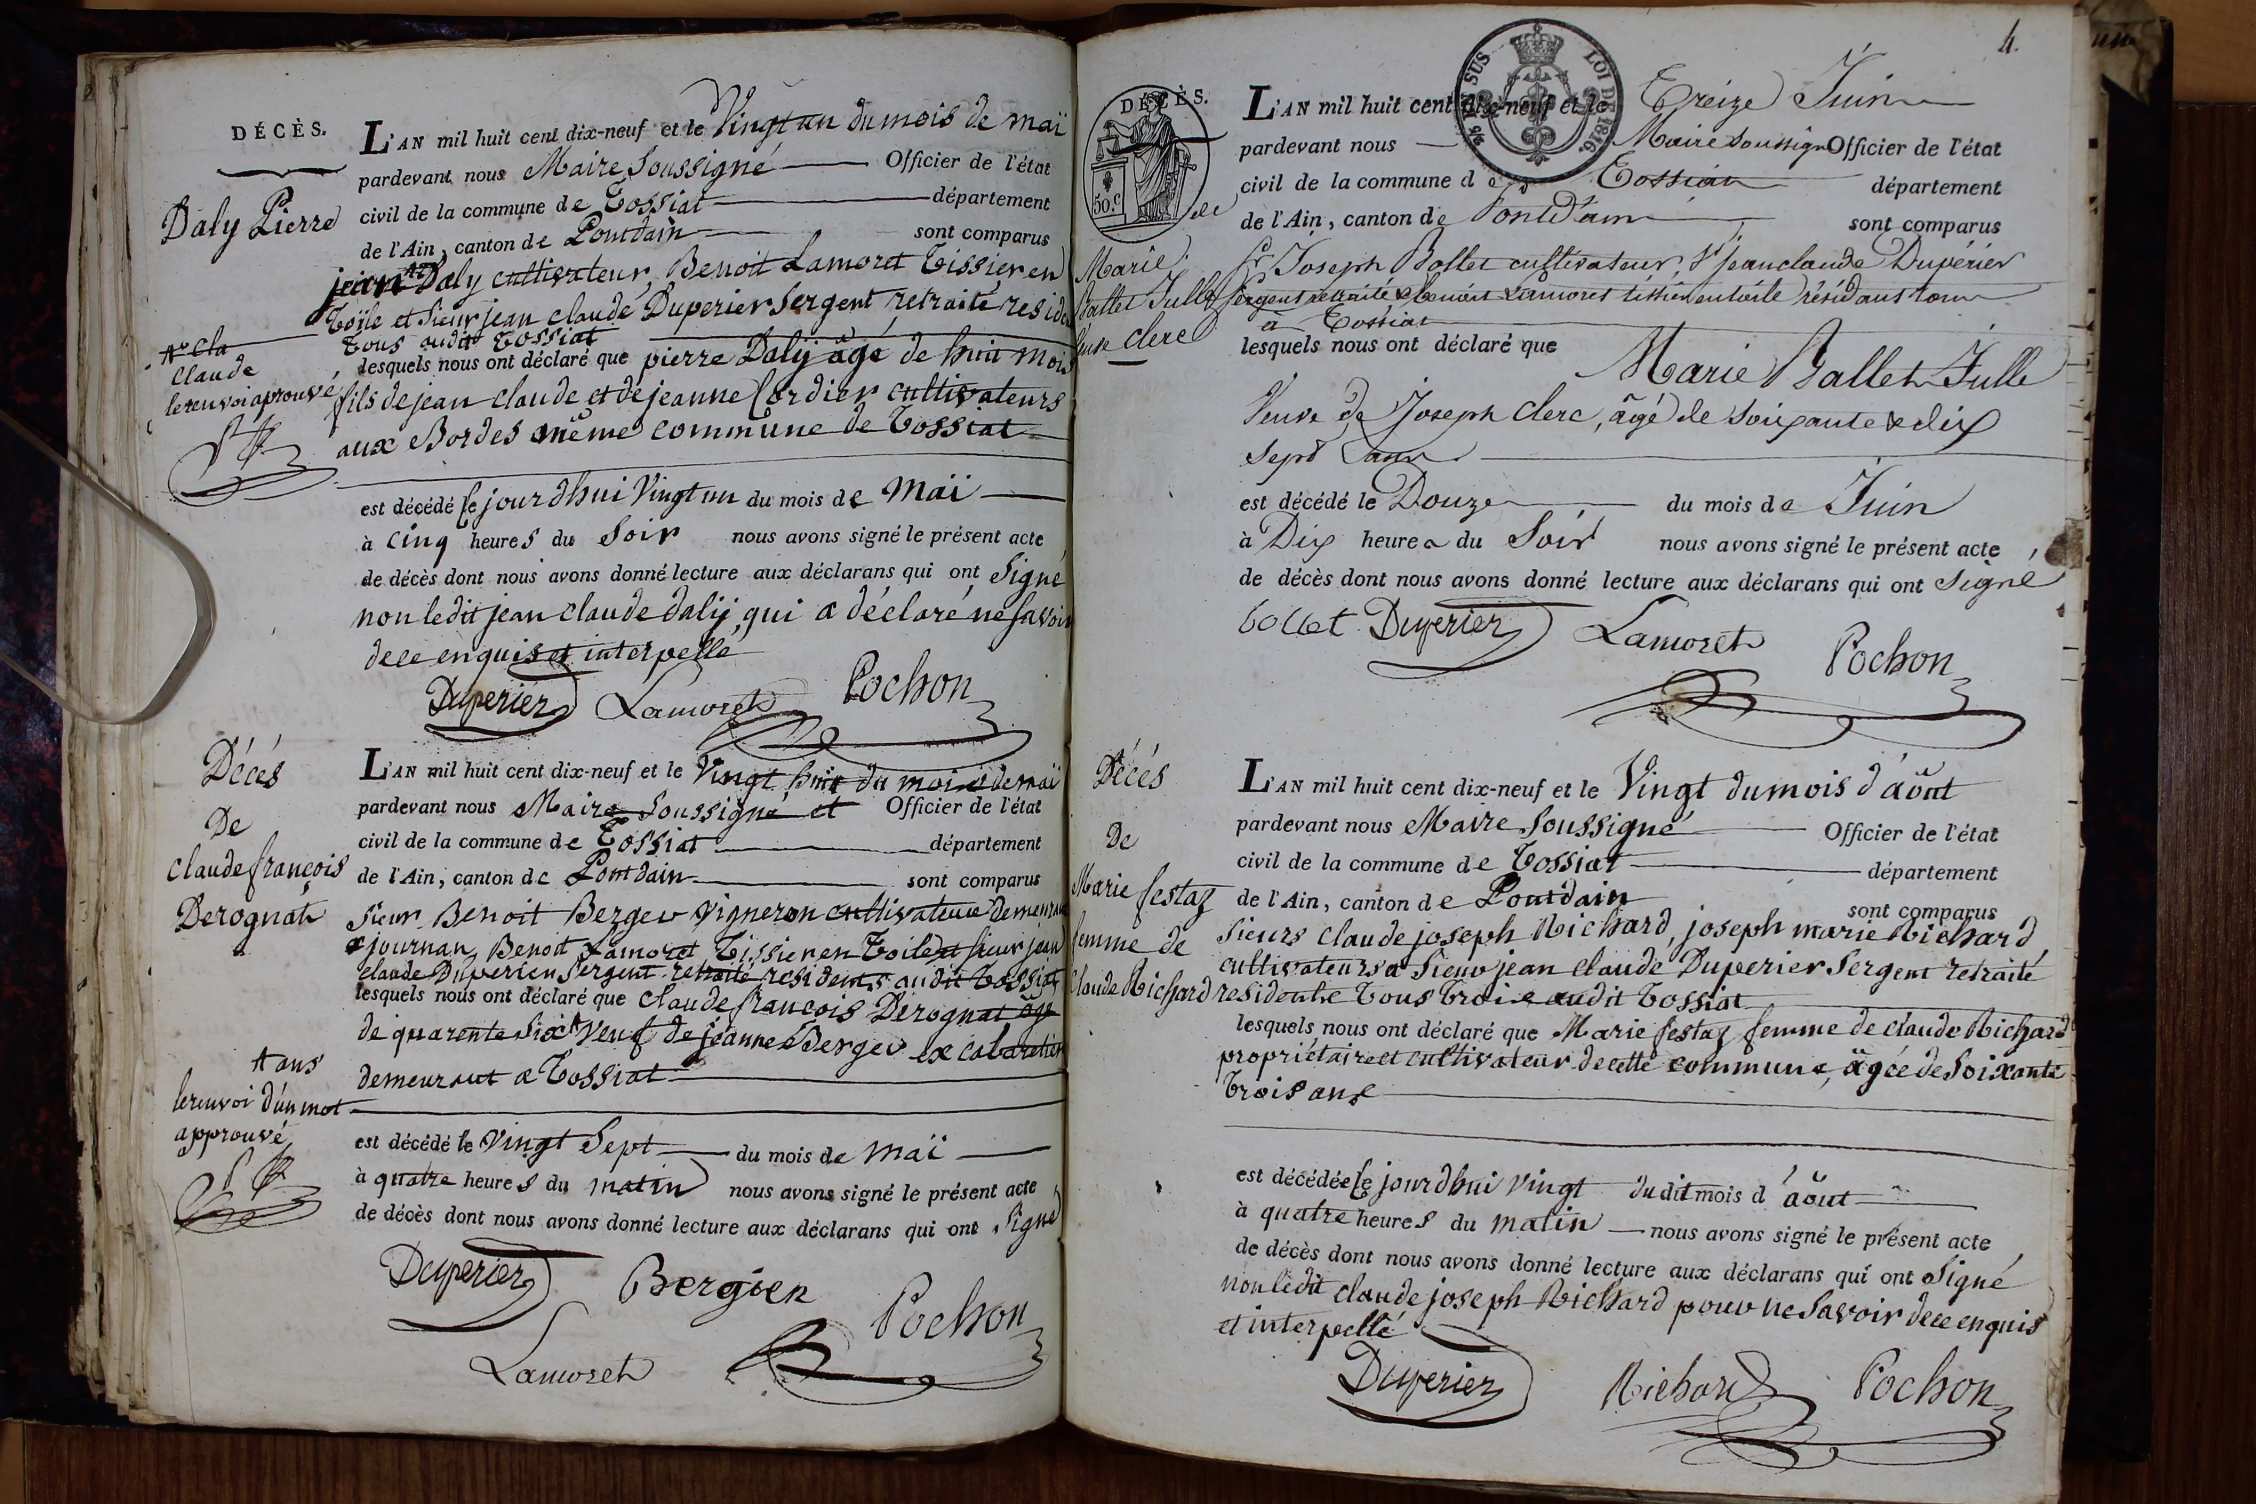 DÉCÈS.
Daly Pierre
L'AN mil huit cent dix-neuf et le Vingt un du mois de maï
pardevant nous Maire Soussigné Officier de l'état
civil de la commune de Tossiat département
de l'Ain, canton de Pontdain sont comparus
jean Daly cultivateur, Benoit Lamoret Tissier en
Toile et Sieur jean claude Duperier Sergent retraité resid
Tous audit Tossiat
lesquels nous ont déclaré que pierre Dalÿ âgé de huit mois
fils de jean claude et de jeanne Cordier cultivateurs
aux Bordes même commune de Tossiat
claude
le renvoi aprouvé
est décédé le jourdhui Vingt un du mois de maï
à cinq heures du Soir nous avons signé le présent acte
de décès dont nous avons donné lecture aux déclarans qui ont Signé
non ledit jean claude dalÿ, qui a déclaré ne Savoir
de ce enquis et interpellé
Duperier Lamoret Pochon
Décés
De
claude françois
Derognat
L'AN mil huit cent dix-neuf et le Vingt huit du mois de maï
pardevant nous Maire Soussigné et Officier de l'état
civil de la commune de Tossiat département
de l'Ain, canton de Pontdain sont comparus
Sieur Benoit Berger vigneron cultivateur demeurant
a journan, Benoit Lamoret Tissier en Toile et Sieur jean
claude Duperier Sergent retraité residents audit Tossiat
lesquels nous ont déclaré que claude françois Derognat âgé
de quarente Six Veuf de jeanne Berger ex cabaretier
demeurant a Tossiat
ans
le renvoi d'un mot
approuvé
est décédé le Vingt Sept du mois de maï
à quatre heures du matin nous avons signé le présent acte
de décès dont nous avons donné lecture aux déclarans qui ont Signé
Duperier Bergier
Pochon
Lamoret
4.
DÉCÈS.
50.c
EN SUS LOI DE 1816.
de
Marie
Ballet Julle
Veuve Clerc
L'AN mil huit cent dix-neuf et le Treize Juin
pardevant nous Maire Soussigné Officier de l'état
civil de la commune de Tossiat département
de l'Ain, canton de Pontd'ain sont comparus
Sr Joseph Bollet cultivateur, Sr jeanclaude Dupérier
Sergent retraité & benoit Lamoret tissier en toile résidans tous
à Tossiat
lesquels nous ont déclaré que Marie Ballet Julle
Veuve de Joseph Clerc, âgé de soixante & dix
Sept ans
est décédé le Douze du mois de Juin
à Dix heures du Soir nous avons signé le présent acte
de décès dont nous avons donné lecture aux déclarans qui ont signé
bollet Duperier Lamoret Pochon
Décés
De
Marie festaz
femme de
Claude Richard
L'AN mil huit cent dix-neuf et le Vingt du mois d'août
pardevant nous Maire Soussigné Officier de l'état
civil de la commune de Tossiat département
de l'Ain, canton de Pontdain sont comparus
Sieurs claude joseph Richard, joseph marie Richard
cultivateurs a Sieur jean claude Duperier Sergent retraité
residents Tous Trois audit Tossiat
lesquels nous ont déclaré que Marie festaz femme de claude Richard
propriétaire et cultivateur de cette commune, âgée de Soixante
Trois ans
est décédée le jourdhui vingt dudit mois d'août
à quatre heures du matin nous avons signé le présent acte
de décès dont nous avons donné lecture aux déclarans qui ont Signé
non ledit claude joseph Richard pour ne Savoir de ce enquis
et interpellé
Duperier Richard Pochon